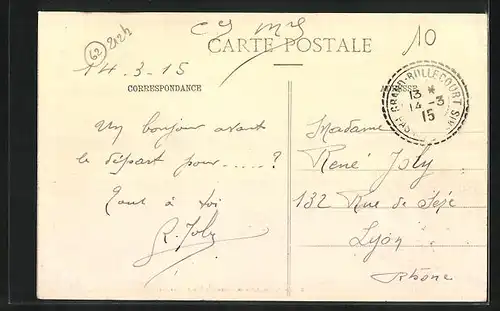 62
10
CARTE POSTALE
14-3-15
CORRESPONDANCE
GRAND-RULLECOURT
13 *
14 -3
15
Un bonjour avant
le départ pour.....?
Tout à toi
R. Joly
Madame
René Joly
132 Rue de Sèze
Lyon
Rhône